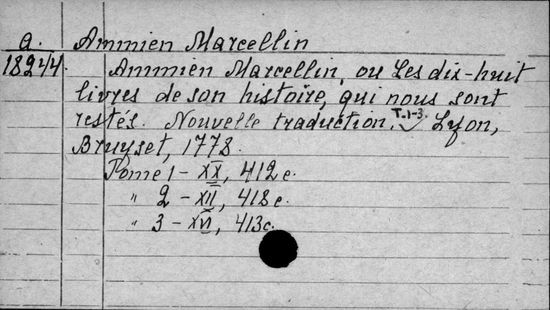 a. Ammien Marcellin
18244 Ammien Marcellin, ou Les dix-huit
livres de son histoire, qui nous sont
restés. Nouvelle traduction. T.1-3. Lyon,
Bruyset, 1778.
Tome 1 - XX, 412 c.
" 2 - XII, 418 c.
" 3 - XVI, 413 c.